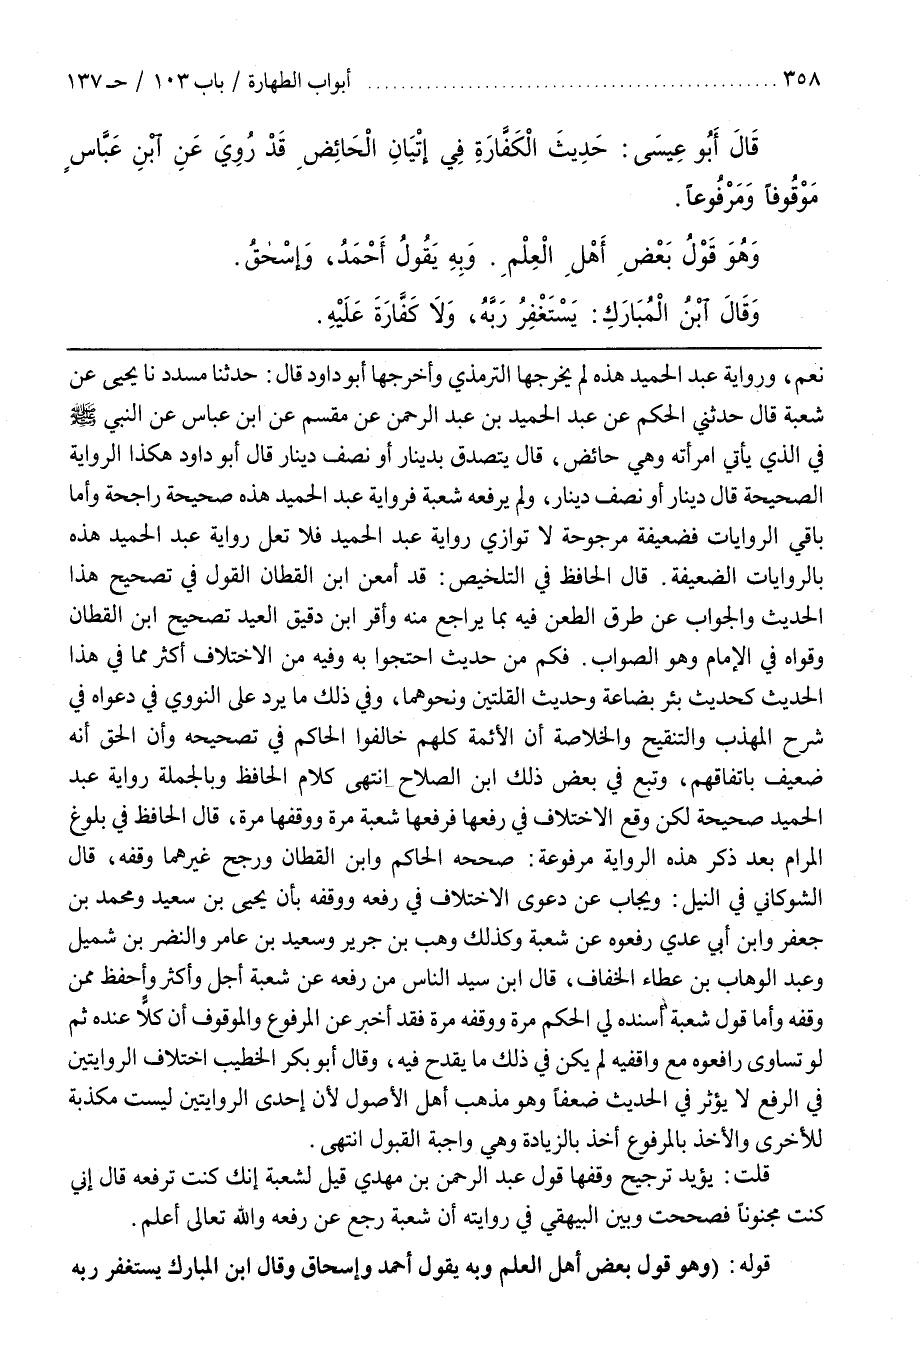 ٣٥٨ ........ أبواب الطهارة / باب ١٠٣ / حـ ١٣٧
قَالَ أَبُو عِيسَى: حَدِيثَ الْكَفَّارَةِ فِي إِتْيَانِ الْحَائِضِ قَدْ رُوِيَ عَنِ ٱبْنِ عَبَّاسٍ
مَوْقُوفاً وَمَرْفُوعاً.
وَهُوَ قَوْلُ بَعْضِ أَهْلِ الْعِلْمِ. وَبِهِ يَقُولُ أَحْمَدُ، وَإِسْحٰقُ.
وَقَالَ ٱبْنُ الْمُبَارَكِ: يَسْتَغْفِرُ رَبَّهُ، وَلَا كَفَّارَةَ عَلَيْهِ.
نعم، ورواية عبد الحميد هذه لم يخرجها الترمذي وأخرجها أبو داود قال: حدثنا مسدد نا يحيى عن
شعبة قال حدثني الحكم عن عبد الحميد بن عبد الرحمن عن مقسم عن ابن عباس عن النبي ﷺ
في الذي يأتي امرأته وهي حائض، قال يتصدق بدينار أو نصف دينار قال أبو داود هكذا الرواية
الصحيحة قال دينار أو نصف دينار، ولم يرفعه شعبة فرواية عبد الحميد هذه صحيحة راجحة وأما
باقي الروايات فضعيفة مرجوحة لا توازي رواية عبد الحميد فلا تعل رواية عبد الحميد هذه
بالروايات الضعيفة. قال الحافظ في التلخيص: قد أمعن ابن القطان القول في تصحيح هذا
الحديث والجواب عن طرق الطعن فيه بما يراجع منه وأقر ابن دقيق العيد تصحيح ابن القطان
وقواه في الإمام وهو الصواب. فكم من حديث احتجوا به وفيه من الاختلاف أكثر مما في هذا
الحديث كحديث بئر بضاعة وحديث القلتين ونحوهما، وفي ذلك ما يرد على النووي في دعواه في
شرح المهذب والتنقيح والخلاصة أن الأئمة كلهم خالفوا الحاكم في تصحيحه وأن الحق أنه
ضعيف باتفاقهم، وتبع في بعض ذلك ابن الصلاح انتهى كلام الحافظ وبالجملة رواية عبد
الحميد صحيحة لكن وقع الاختلاف في رفعها فرفعها شعبة مرة ووقفها مرة، قال الحافظ في بلوغ
المرام بعد ذكر هذه الرواية مرفوعة: صححه الحاكم وابن القطان ورجح غيرهما وقفه، قال
الشوكاني في النيل: ويجاب عن دعوى الاختلاف في رفعه ووقفه بأن يحيى بن سعيد ومحمد بن
جعفر وابن أبي عدي رفعوه عن شعبة وكذلك وهب بن جرير وسعيد بن عامر والنضر بن شميل
وعبد الوهاب بن عطاء الخفاف، قال ابن سيد الناس من رفعه عن شعبة أجل وأكثر وأحفظ ممن
وقفه وأما قول شعبة أسنده لي الحكم مرة ووقفه مرة فقد أخبر عن المرفوع والموقوف أن كلاًّ عنده ثم
لو تساوى رافعوه مع واقفيه لم يكن في ذلك ما يقدح فيه، وقال أبو بكر الخطيب اختلاف الروايتين
في الرفع لا يؤثر في الحديث ضعفاً وهو مذهب أهل الأصول لأن إحدى الروايتين ليست مكذبة
للأخرى والأخذ بالمرفوع أخذ بالزيادة وهي واجبة القبول انتهى.
قلت: يؤيد ترجيح وقفها قول عبد الرحمن بن مهدي قيل لشعبة إنك كنت ترفعه قال إني
كنت مجنوناً فصححت وبين البيهقي في روايته أن شعبة رجع عن رفعه والله تعالى أعلم.
قوله: (وهو قول بعض أهل العلم وبه يقول أحمد وإسحاق وقال ابن المبارك يستغفر ربه